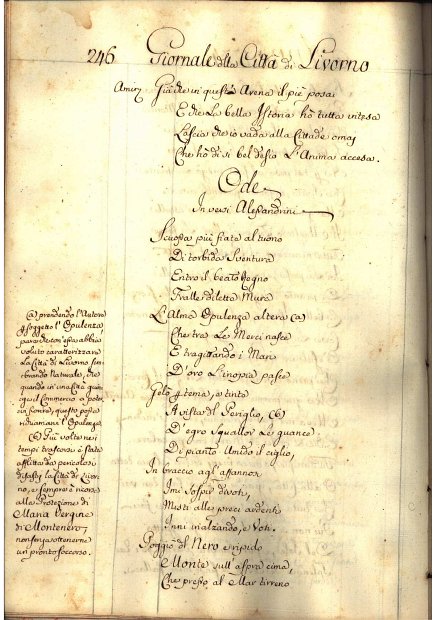 246 Giornale della Città di Livorno
Amir Già che in questa Arena il piè posai
E che la bella Istoria hò tutta intesa
Lascia che io vada alla Cittade omai
Che hò di sì bel desio L'Anima accesa.
Ode
In versi Alessandrini
Scuossa più fiate al tuono
Di torbida Sventura
Entro il beato Regno
Fralle dilette Mura
L'Alma Opulenza altera (a)
Che tra Le Merci nasce
E tragittando i Mari
D'oro L'inopia pasce
tema, e tinta
A vista del Periglio, (b)
D'egro Squallor Le guance
Di pianto Umido il ciglio,
In braccio agl'affanni
Imi Sospir divoti,
Misti alle preci ardenti
Inni inalzando, e Voti.
Poggio del Nero e ripido
Monte sull'aspra cima,
Che presso al Mar tirreno
(a) prendendo l'Autore
p soggetto l'Opulenza
pare che con essa abbia
voluto caratterizzare
La Città di Livorno sem
brando Naturale, che
quando in una Città qua
si il Commercio a poter
si fiorire, questo possa
richiamarsi l'Opulenza
(b) Più volte nei
tempi trascorsi è stata
afflitta da pericolosi
disastri la Città di Livor
no, e sempre è ricorsa
alla Protezione di
Maria Vergine
di Montenero,
non senza ottenerne
un pronto soccorso.